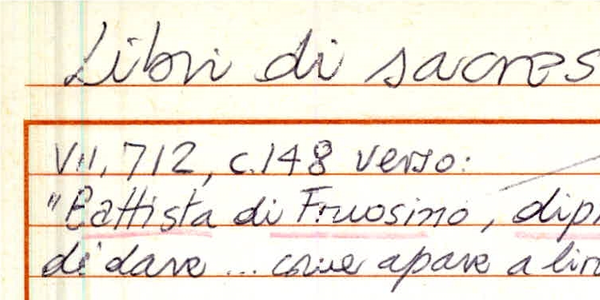 Libri di sacres
VII, 712, c.148 verso:
"Battista di Fruosino, dipi
di dare ... come apare a lir